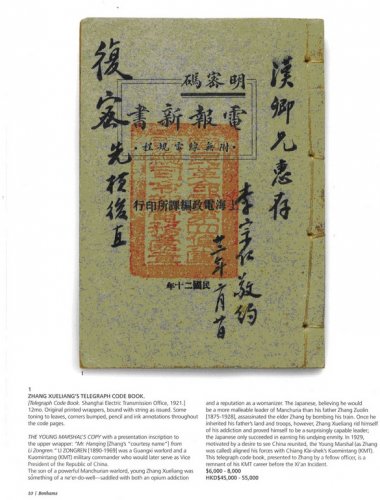 漢卿兄惠存
李宗仁敬約
復密先橫後直
明密碼
電報新書
·附無線電規程·
上海電政編課所印行
民國二十年
1
1
ZHANG XUELIANG'S TELEGRAPH CODE BOOK.
[Telegraph Code Book. Shanghai Electric Transmission Office, 1921.]
12mo. Original printed wrappers, bound with string as issued. Some
toning to leaves, corners bumped, pencil and ink annotations throughout
the code pages.
THE YOUNG MARSHAL'S COPY with a presentation inscription to
the upper wrapper: "Mr. Hanqing [Zhang's "courtesy name"] from
Li Zongren." LI ZONGREN [1890-1969] was a Guangxi warlord and
Kuomintang (KMT) military commander who would later serve as Vice
President of the Republic of China.
The son of a powerful Manchurian warlord, young Zhang Xueliang was
something of a ne'er-do-well--saddled with both an opium addiction
and a reputation as a womanizer. The Japanese, believing he would
be a more malleable leader of Manchuria than his father Zhang Zuolin
[1875-1928], assassinated the elder Zhang by bombing his train. Once he
inherited his father's land and troops, however, Zhang Xueliang rid himself
of his addiction and proved himself to be a surprisingly capable leader;
the Japanese only succeeded in earning his undying enmity. In 1929,
motivated by a desire to see China reunited, the Young Marshal (as Zhang
was called) aligned his forces with Chiang Kai-shek's Kuomintang (KMT).
This telegraph code book, presented to Zhang by a fellow officer, is a
remnant of his KMT career before the Xi'an Incident.
$6,000 - 8,000
HKD$45,000 - 55,000
10 | Bonhams